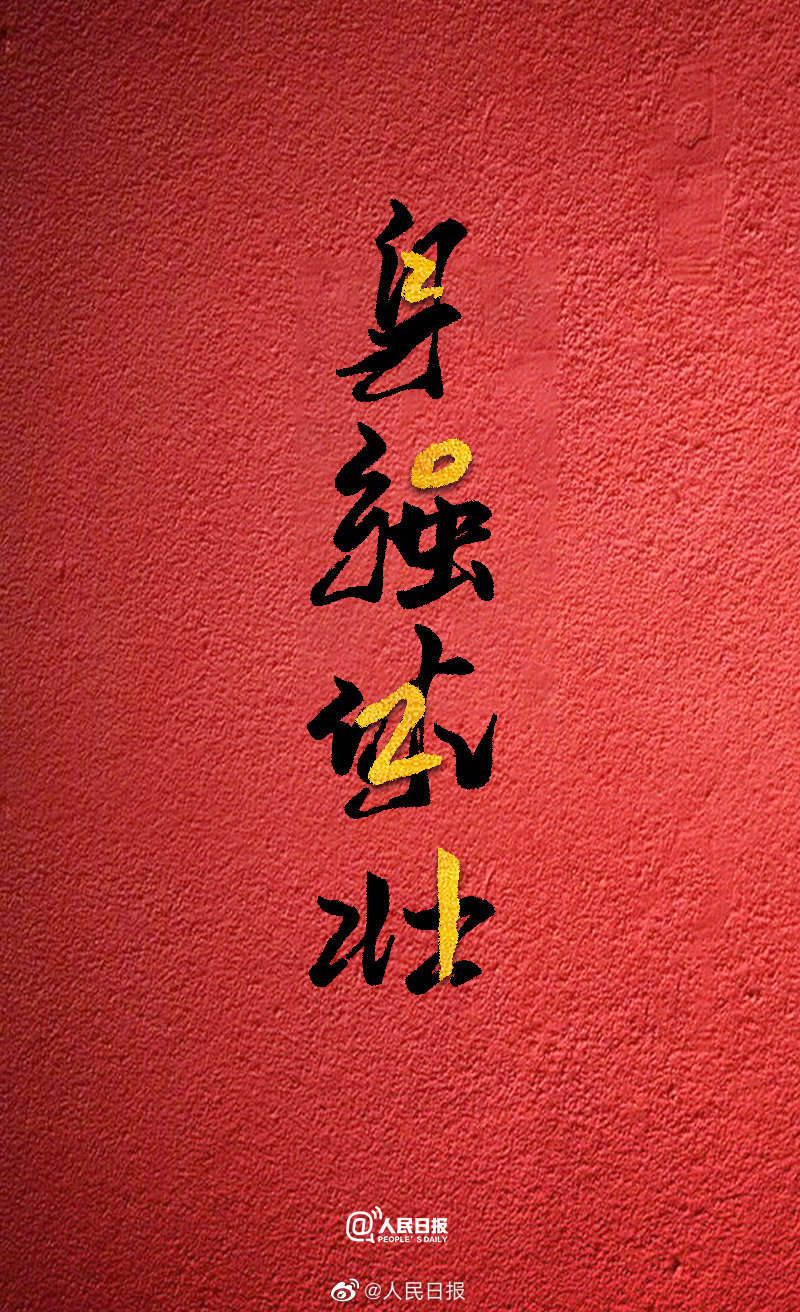 身强体壮
@人民日报
PEOPLE'S DAILY
@人民日报